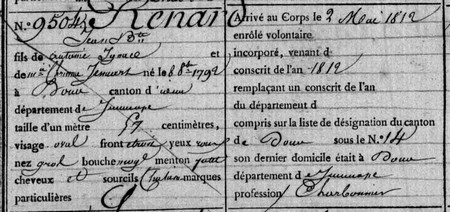 N.º 9504. Renard
Jean Bte
fils de antoine Ignace et
de mie né le 8 8bre 1792
à Dour canton d'idem
département de Jemmape
taille d'un mètre 57 centimètres,
visage oval front étroit yeux roux
nez gros bouche menton petit
cheveux et sourcils Chatain marques
particulières
Arrivé au Corps le 2 Mai 1812
enrôlé volontaire.
incorporé, venant d
conscrit de l'an 1812
remplaçant un conscrit de l'an
du département d
compris sur la liste de désignation du canton
de Dour sous le N.º 14
son dernier domicile était à Dour
département de Jemmape
profession Charbonnier